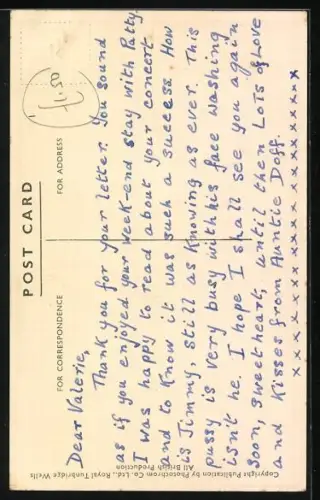 £1.50
POST CARD
FOR CORRESPONDENCE
FOR ADDRESS
Dear Valerie,
Thank you for your letter. You sound
as if you enjoyed your week-end stay with Patty.
I was happy to read about your concert
and to know it was such a success. How
is Jimmy, still as knowing as ever. This
pussy is very busy with his face washing
isn't he. I hope I shall see you again
soon, sweetheart, until then Lots of Love
and Kisses from Auntie Doff.
x x x x x x x x x x x x x x x x x x
Copyright Publication by Photochrom Co., Ltd., Royal Tunbridge Wells
All British Production